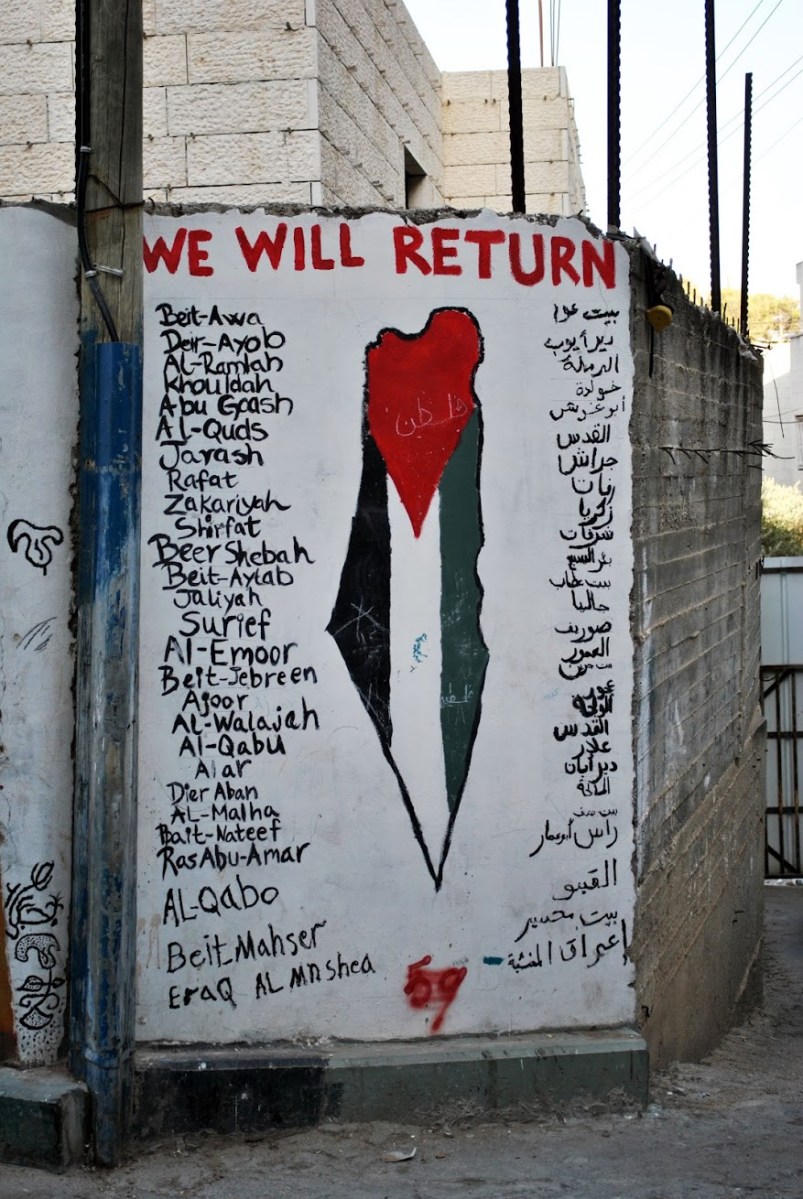 WE WILL RETURN
Beit-Awa
Deir-Ayob
Al-Ramlah
Khouldah
Abu Goash
Al-Quds
Jarash
Rafat
Zakariyah
Shirfat
Beer Shebah
Beit-Aytab
Jaliyah
Surief
Al-Emoor
Beit-Jebreen
Ajoor
AL-Walajah
Al-Qabu
Alar
Dier Aban
AL-Malha
Bait-Nateef
Ras Abu-Amar
AL-Qabo
Beit Mahser
EraQ AL Mnshea
فلسطين
فلسطين
بيت عوا
دير أيوب
الرملة
خولدة
أبو غوش
القدس
جراش
رفات
زكريا
شرفات
بئر السبع
بيت عطاب
جاليا
صوريف
العمور
عجور
الولجة
القدس
علار
دير أبان
المالحة
راس أبو عمار
القبو
بيت محسير
اعراق المنشية
59